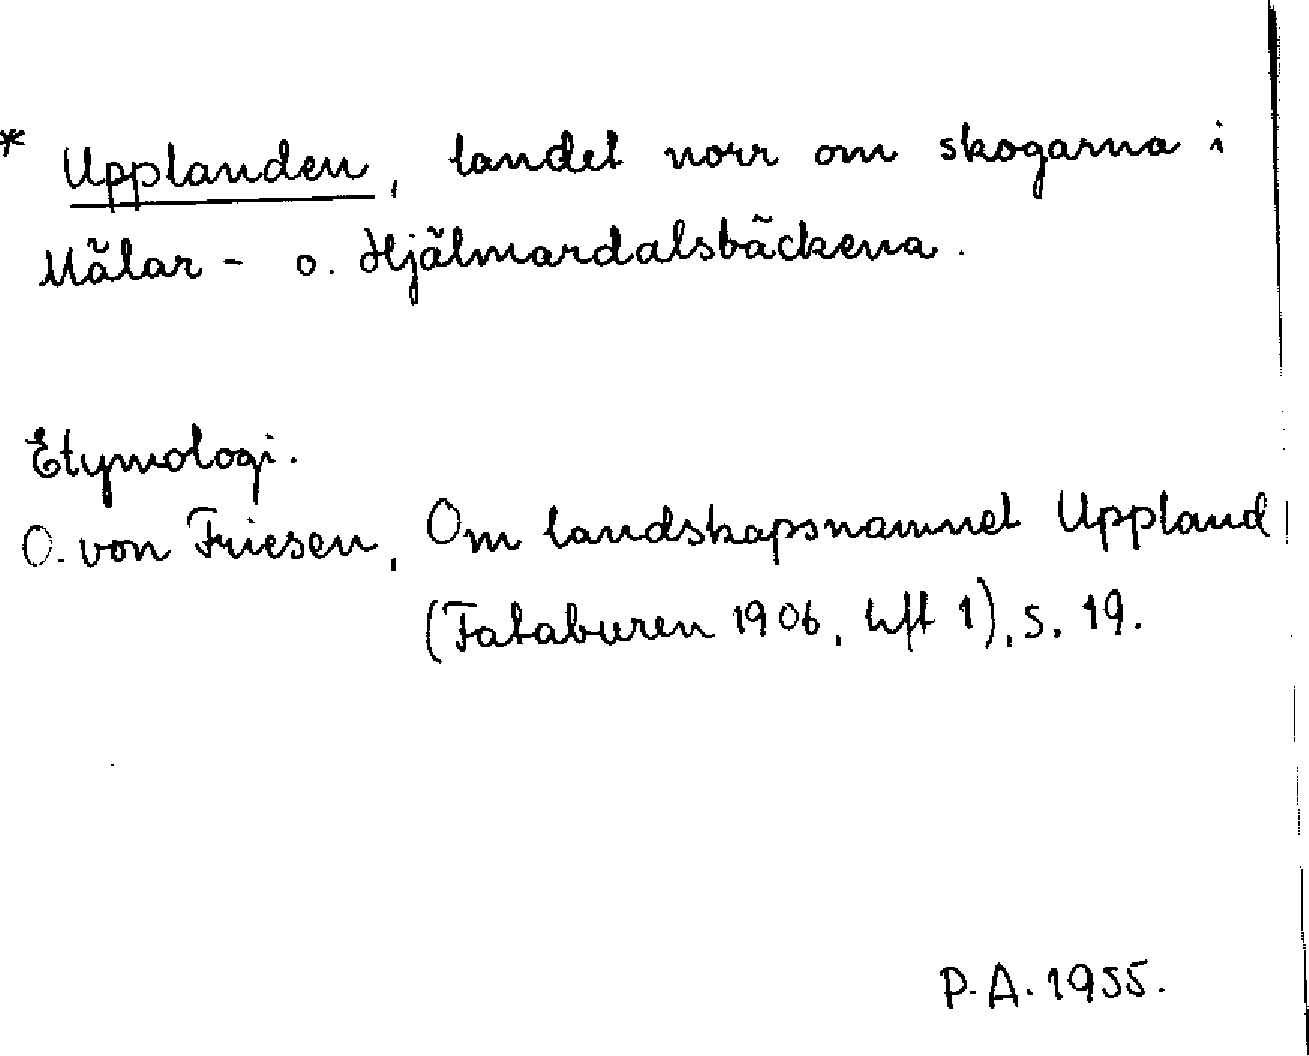 * Upplanden, landet norr om skogarna i
Mälar- o. Hjälmardalsbäckena.
Etymologi.
O. von Friesen, Om landskapsnamnet Uppland
(Fataburen 1906, hft 1), s. 19.
P.A. 1955.